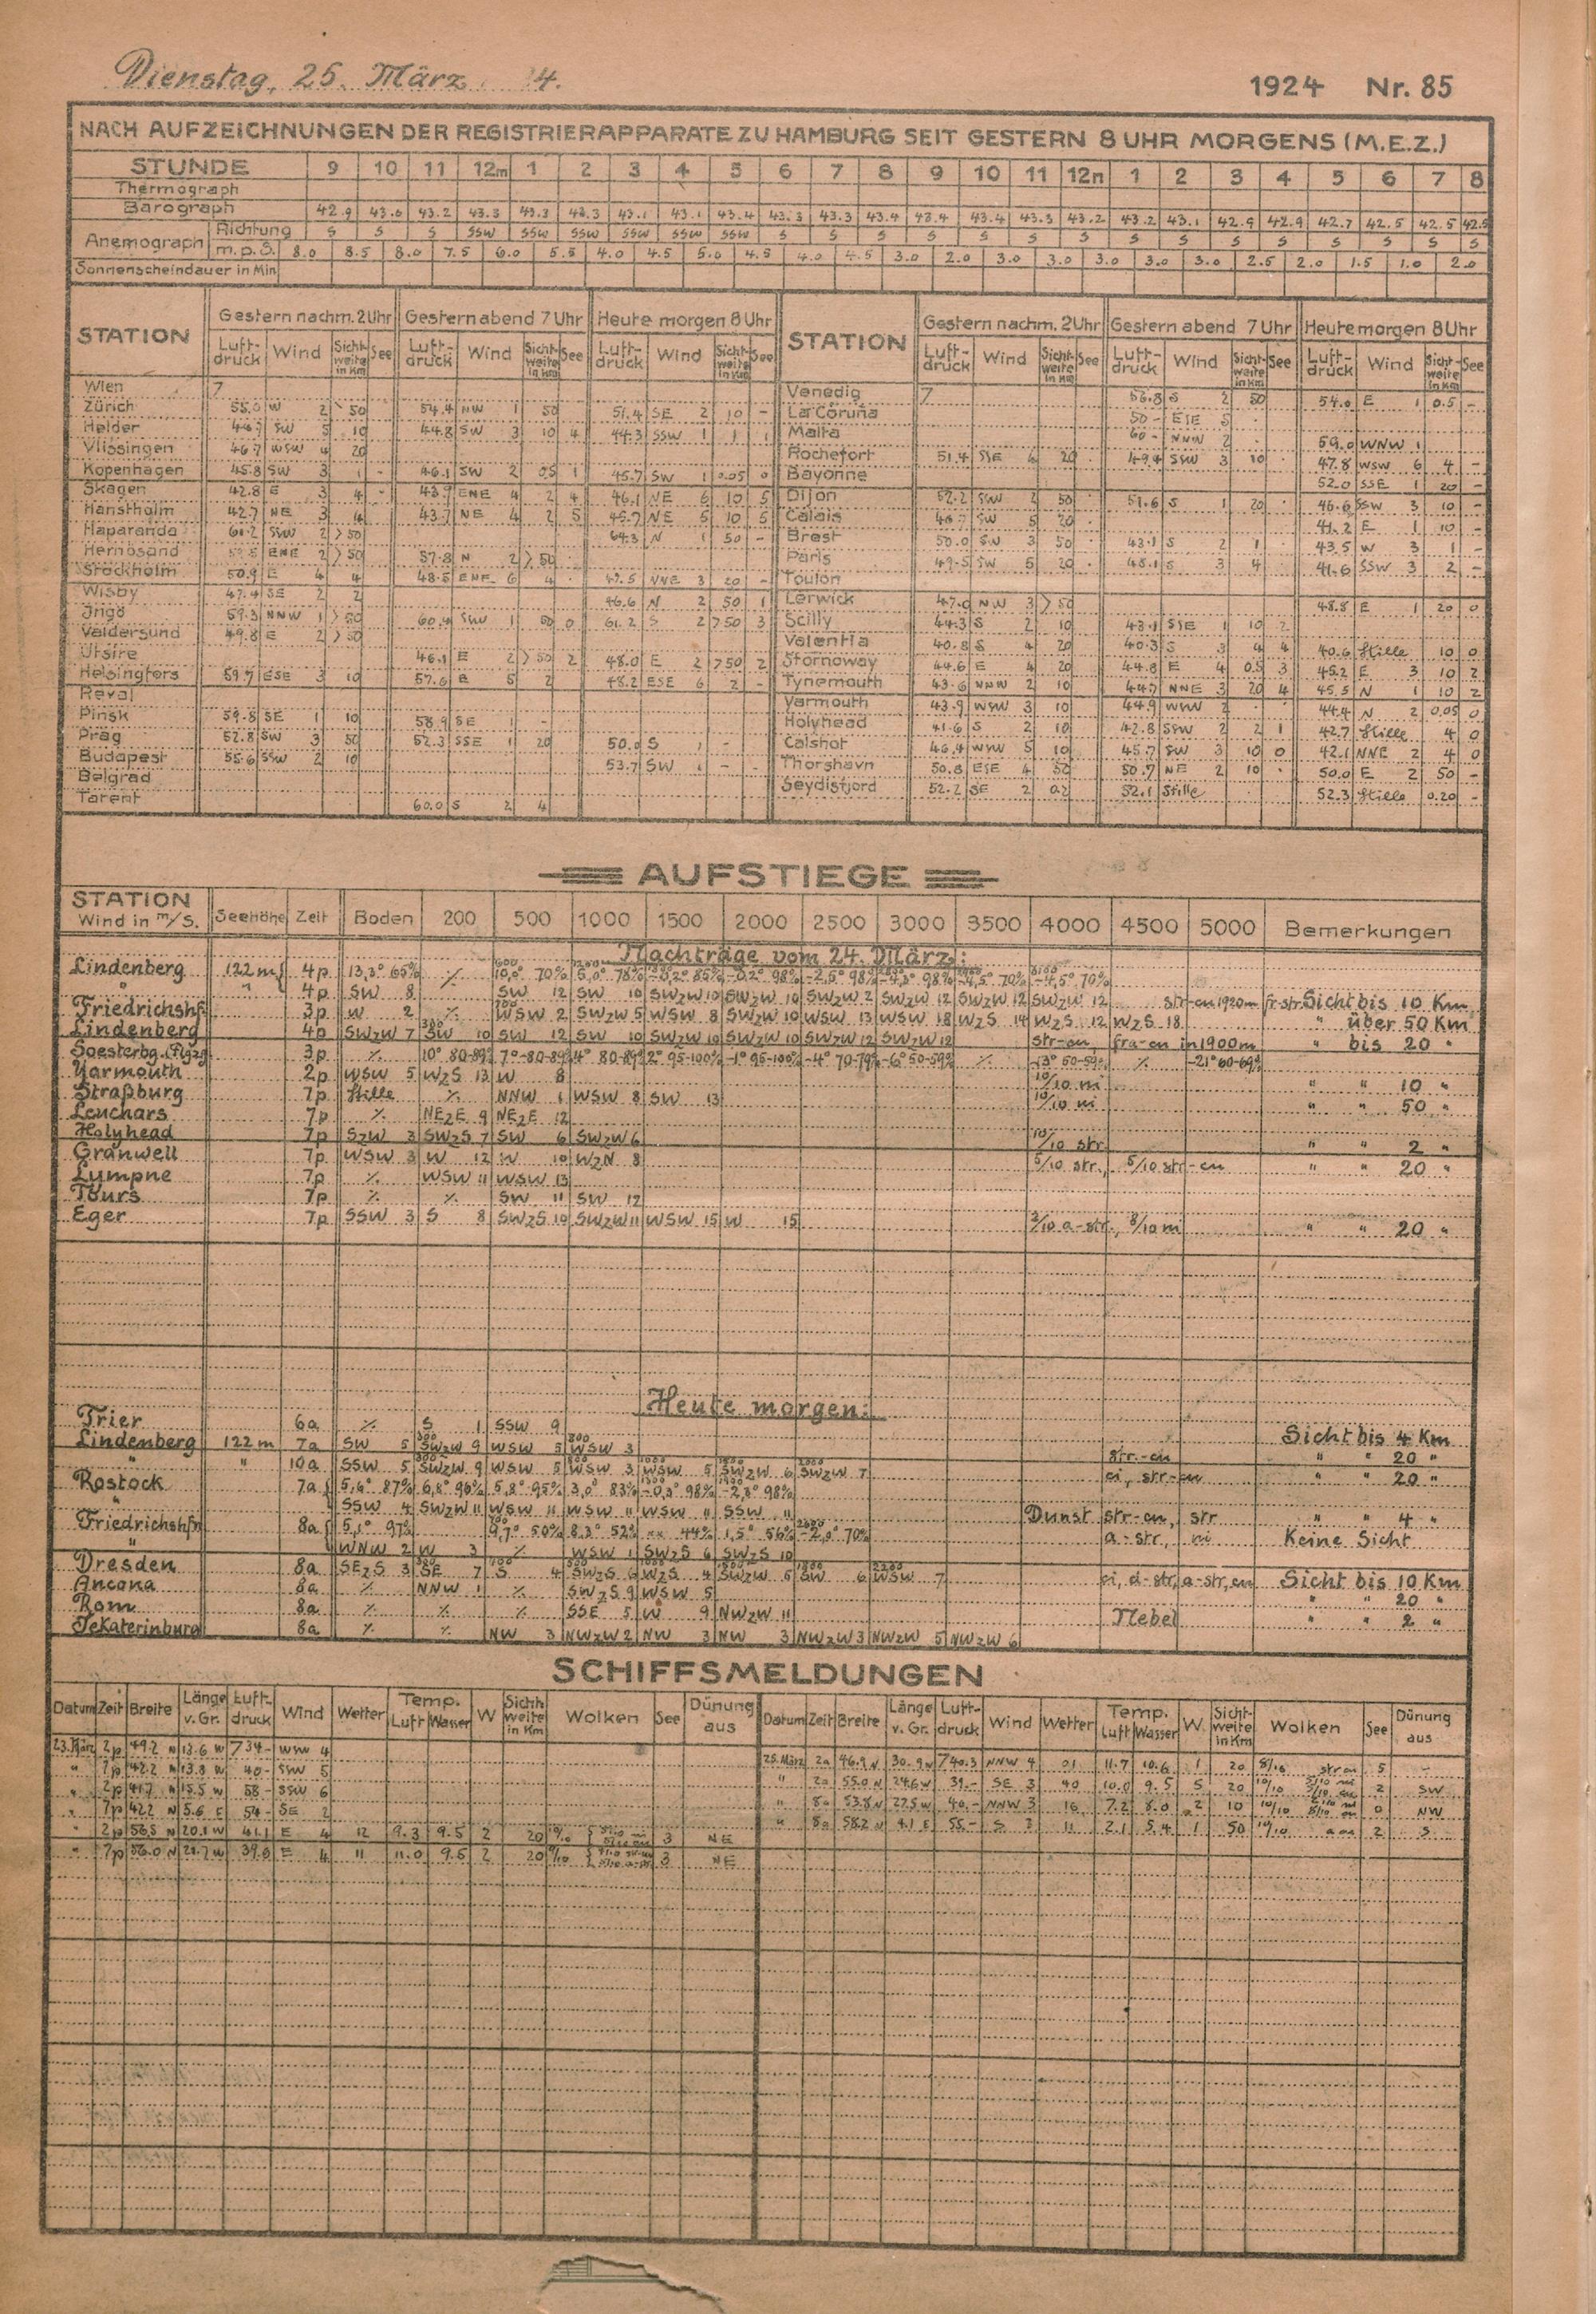 Dienstag, 25. März 1924 Nr. 85
NACH AUFZEICHNUNGEN DER REGISTRIERAPPARATE ZU HAMBURG SEIT GESTERN 8 UHR MORGENS (M.E.Z.)
STUNDE 9 10 11 12m 1 2 3 4 5 6 7 8 9 10 11 12n 1 2 3 4 5 6 7 8
Thermograph
Barograph 42.9 43.6 43.2 43.3 43.3 43.3 43.1 43.1 43.4 43.3 43.3 43.4 43.4 43.4 43.3 43.2 43.2 43.1 42.9 42.9 42.7 42.5 42.5 42.5
Anemograph Richtung S S S SSW SSW SSW SSW SSW SSW S S S S S S S S S S S S S S S
m.p.S. 8.0 8.5 8.0 7.5 6.0 5.5 4.0 4.5 5.0 4.5 4.0 4.5 3.0 2.0 3.0 3.0 3.0 3.0 3.0 2.5 2.0 1.5 1.0 2.0
Sonnenscheindauer in Min.
STATION Gestern nachm. 2 Uhr Gestern abend 7 Uhr Heute morgen 8 Uhr STATION Gestern nachm. 2 Uhr Gestern abend 7 Uhr Heute morgen 8 Uhr
Luftdruck Wind Sichtweite in Km See Luftdruck Wind Sichtweite in Km See Luftdruck Wind Sichtweite in Km See Luftdruck Wind Sichtweite in Km See Luftdruck Wind Sichtweite in Km See Luftdruck Wind Sichtweite in Km See
Wien 7 Venedig 7 56.8 S 2 50 54.0 E 1 0.5 -
Zürich W 2 50 54.4 NW 1 50 51.4 SE 2 10 - La Coruña 50 - ESE 5
Helder SW 5 10 44.8 SW 3 10 4 44.3 SSW 1 1 1 Malta 60 - NNW 2 59.0 WNW 1
Vlissingen 46.7 WSW 4 20 Rochefort 51.4 SSE 6 20 49.4 SSW 3 10 47.8 WSW 6 4 -
Kopenhagen 45.8 SW 3 1 - 46.1 SW 2 0.5 1 45.7 SW 1 0.05 0 Bayonne 52.0 SSE 1 20 -
Skagen 42.8 E 3 4 - 43.7 ENE 4 2 4 46.1 NE 6 10 5 Dijon 52.2 SSW 2 50 51.6 S 1 20 46.6 SSW 3 10 -
Hanstholm 42.7 NE 3 4 43.7 NE 4 2 5 45.7 NE 5 10 5 Calais SW 5 20 41.2 E 1 10 -
Haparanda 61.2 SSW 2 >50 64.3 N 1 50 - Brest 50.0 SW 3 50 43.1 S 2 1 43.5 W 3 1 -
Hernösand ENE 2 >50 57.8 N 2 >50 Paris 49.5 SW 5 20 48.1 S 3 4 41.6 SSW 3 2 -
Stockholm 50.9 E 4 4 48.5 ENE 6 4 NNE 3 20 - Toulon
Wisby 47.4 SE 2 2 46.6 N 2 50 1 Lerwick 47.0 NW 3 >50 48.8 E 1 20 0
Ingö 59.3 NNW 1 >50 60.4 SSW 1 50 0 61.2 S 2 >50 3 Scilly 44.3 S 2 10 43.1 SSE 1 10 2
Valdersund 49.8 E 2 >50 Valentia 40.8 S 4 20 40.3 S 3 4 4 40.6 Stille 10 0
Utsire 46.1 E 2 >50 2 48.0 E 2 >50 2 Stornoway 44.6 E 4 20 44.8 E 4 0.5 3 45.2 E 3 10 2
Helsingfors 59.7 ESE 3 10 57.6 E 5 2 48.2 ESE 6 2 - Tynemouth 43.6 NNW 2 10 44.7 NNE 3 20 4 45.5 N 1 10 2
Reval Yarmouth 43.9 WSW 3 10 44.9 WSW 2 44.4 N 2 0.05 0
Pinsk 59.8 SE 1 10 58.9 SE 1 - Holyhead 41.6 S 2 10 42.8 SSW 2 2 1 42.7 Stille 4 0
Prag 52.8 SW 3 50 52.3 SSE 1 20 50.0 S 1 - Calshot 46.4 WSW 5 10 45.7 SW 3 10 0 42.1 NNE 2 4 0
Budapest 55.6 SSW 2 10 53.7 SW 1 - - Thorshavn 50.8 ESE 4 50 50.7 NE 2 10 50.0 E 2 50 -
Belgrad Seydisfjord 52.2 SE 2 0.2 52.1 Stille 52.3 Stille 0.20 -
Tarent 60.0 S 2 4
AUFSTIEGE
STATION Wind in m/S. Seehöhe Zeit Boden 200 500 1000 1500 2000 2500 3000 3500 4000 4500 5000 Bemerkungen
Nachträge vom 24. März:
Lindenberg 122 m 4p 13,3° 65% ⁒ 10,0° 70% 5,0° 78% -0,2° 85% -0,2° 98% -2,5° 98% -4,5° 98% -4,5° 70% -4,5° 70%
" " 4p SW 8 SW 12 SW 10 SWzW 10 SWzW 10 SWzW 2 SWzW 12 SWzW 12 SWzW 12 str-cu 1920m fr-str. Sicht bis 10 Km
Friedrichshf. 3p W 2 ⁒ WSW 2 SWzW 5 WSW 8 SWzW 10 WSW 13 WSW 18 WzS 14 WzS 12 WzS 18 " über 50 Km
Lindenberg 4p SWzW 7 SW 10 SW 12 SW 10 SWzW 10 SWzW 10 SWzW 12 SWzW 12 str-cu, fra-cu in 1900m " bis 20 "
Soesterbg. (Flgzg) 3p ⁒ 10° 80-89% 7° 80-89% 4° 80-89% 2° 95-100% -1° 95-100% -4° 70-79% -6° 50-59% ⁒ -13° 50-59% ⁒ -21° 60-69%
Yarmouth 2p WSW 5 WzS 13 W 8 10/10 ni " " 10 "
Straßburg 7p Stille ⁒ NNW 1 WSW 8 SW 13 10/10 ni " " 50 "
Leuchars 7p ⁒ NEzE 9 NEzE 12
Holyhead 7p SzW 3 SWzS 7 SW 6 SWzW 6 10/10 str. " " 2 "
Cranwell 7p WSW 3 W 12 W 10 WzN 8 5/10 str., 5/10 str-cu " " 20 "
Lympne 7p ⁒ WSW 11 WSW 13
Tours 7p ⁒ ⁒ SW 11 SW 12
Eger 7p SSW 3 S 8 SWzS 10 SWzW 11 WSW 15 W 15 2/10 a-str., 8/10 ni " " 20 "
Heute morgen:
Trier 6a ⁒ S 1 SSW 9 Sicht bis 4 Km
Lindenberg 122 m 7a SW 5 SWzW 9 WSW 5 WSW 3 str.-cu " " 20 "
" " 10a SSW 5 SWzW 9 WSW 5 WSW 3 WSW 5 SWzW 6 SWzW 7 ci, str-cu " " 20 "
Rostock 7a 5,6° 87% 6,8° 96% 5,8° 95% 3,0° 83% -0,3° 98% -2,8° 98%
" SSW 4 SWzW 11 WSW 11 WSW 11 WSW 11 SSW 11 Dunst str-cu, str " " 4 "
Friedrichshfn 8a 5,1° 97% 9,7° 50% 8,3° 52% 44% 1,5° 56% -2,0° 70% a-str., ni Keine Sicht
" WNW 2 W 3 ⁒ WSW 1 SWzS 6 SWzS 10
Dresden 8a SEzS 3 SE 7 S 4 SWzS 6 WzS 4 SWzW 5 SW 6 WSW 7 ci, d-str, a-str, cu Sicht bis 10 Km
Ancona 8a ⁒ NNW 1 ⁒ SWzS 9 WSW 5 " " 20 "
Rom 8a ⁒ ⁒ ⁒ SSE 5 W 9 NWzW 11 Nebel " " 2 "
Jekaterinburg 8a ⁒ ⁒ NW 3 NWzW 2 NW 3 NW 3 NWzW 3 NWzW 5 NWzW 6
SCHIFFSMELDUNGEN
Datum Zeit Breite Länge v. Gr. Luftdruck Wind Wetter Temp. Luft Wasser W Sichtweite in Km Wolken See Dünung aus Datum Zeit Breite Länge v. Gr. Luftdruck Wind Wetter Temp. Luft Wasser W. Sichtweite in Km Wolken See Dünung aus
23. März 2p 49.2 N 13.6 W 734- WSW 4 25. März 2a 46.9 N 30.9 W 740.3 NNW 4 01 11.7 10.6 1 20 8/10 str cu 5 -
" 7p 42.2 N 13.8 W 40- SSW 5 " 2a 55.0 N 24.6 W 39.- SE 3 40 10.0 9.5 5 20 10/10 2 SW
" 2p 41.7 N 15.5 W 58- SSW 6 " 8a 53.8 N 27.5 W 40.- NNW 3 16 7.2 8.0 2 10 10/10 0 NW
" 7p 42.2 N 5.6 E 54- SE 2 " 8a 58.2 N 4.1 E 55- S 3 11 2.1 5.4 1 50 10/10 a cu 2 S
" 2p 56.5 N 20.1 W 41.1 E 4 12 9.3 9.5 2 20 3 NE
" 7p 56.0 N W 39.8 E 4 11 11.0 9.5 2 20 3 NE